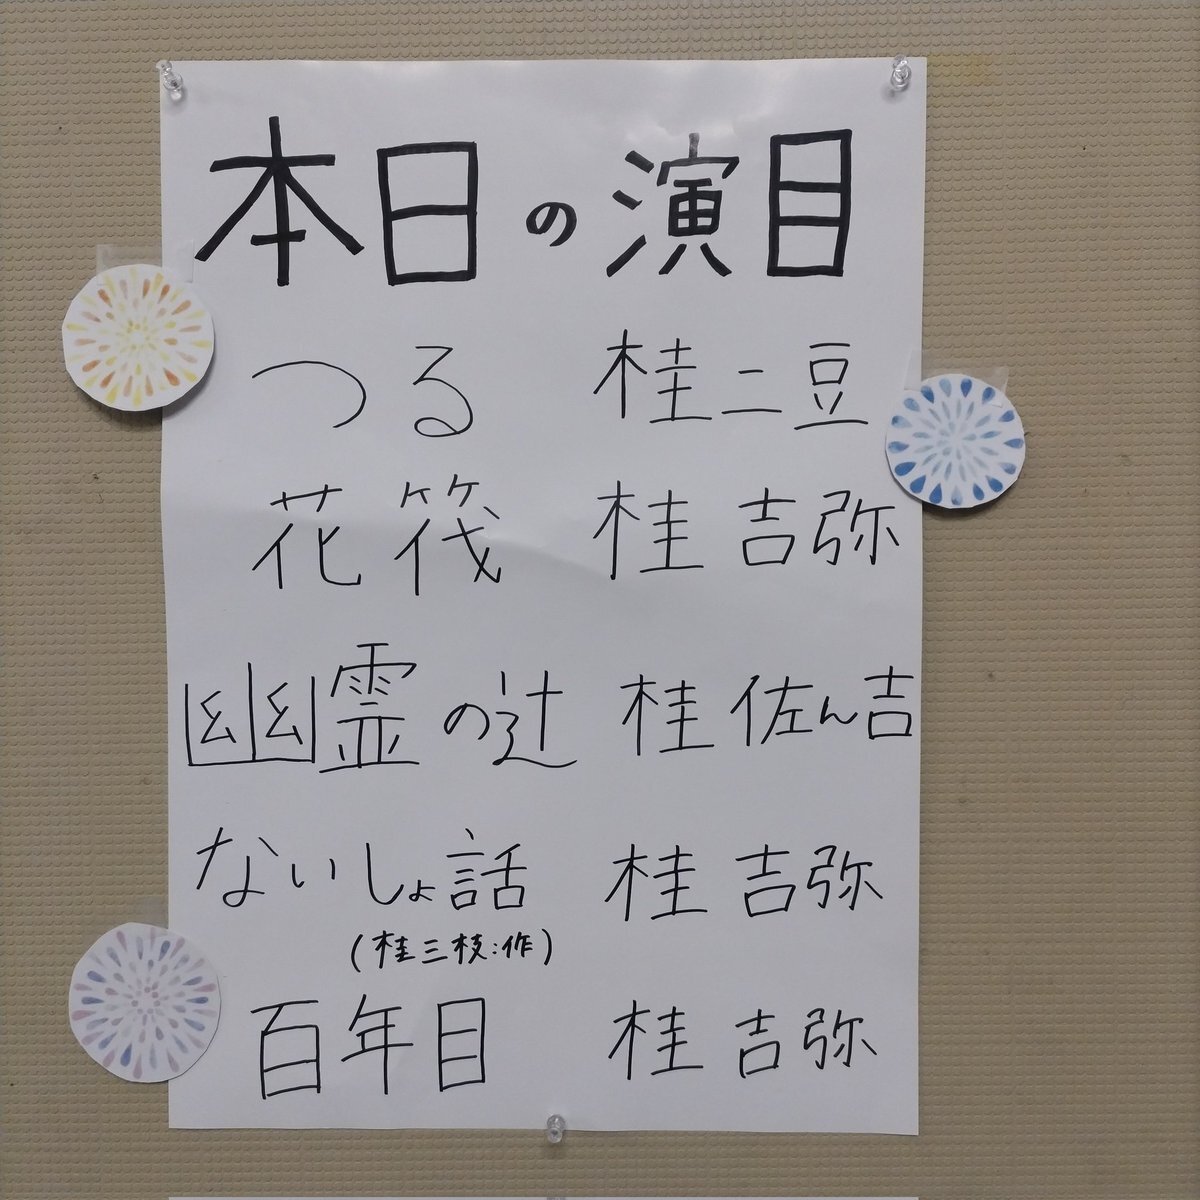 本日の演目
つる 桂二豆
花筏 桂吉弥
幽霊の辻 桂佐ん吉
ないしょ話 桂吉弥
(桂三枝:作)
百年目 桂吉弥